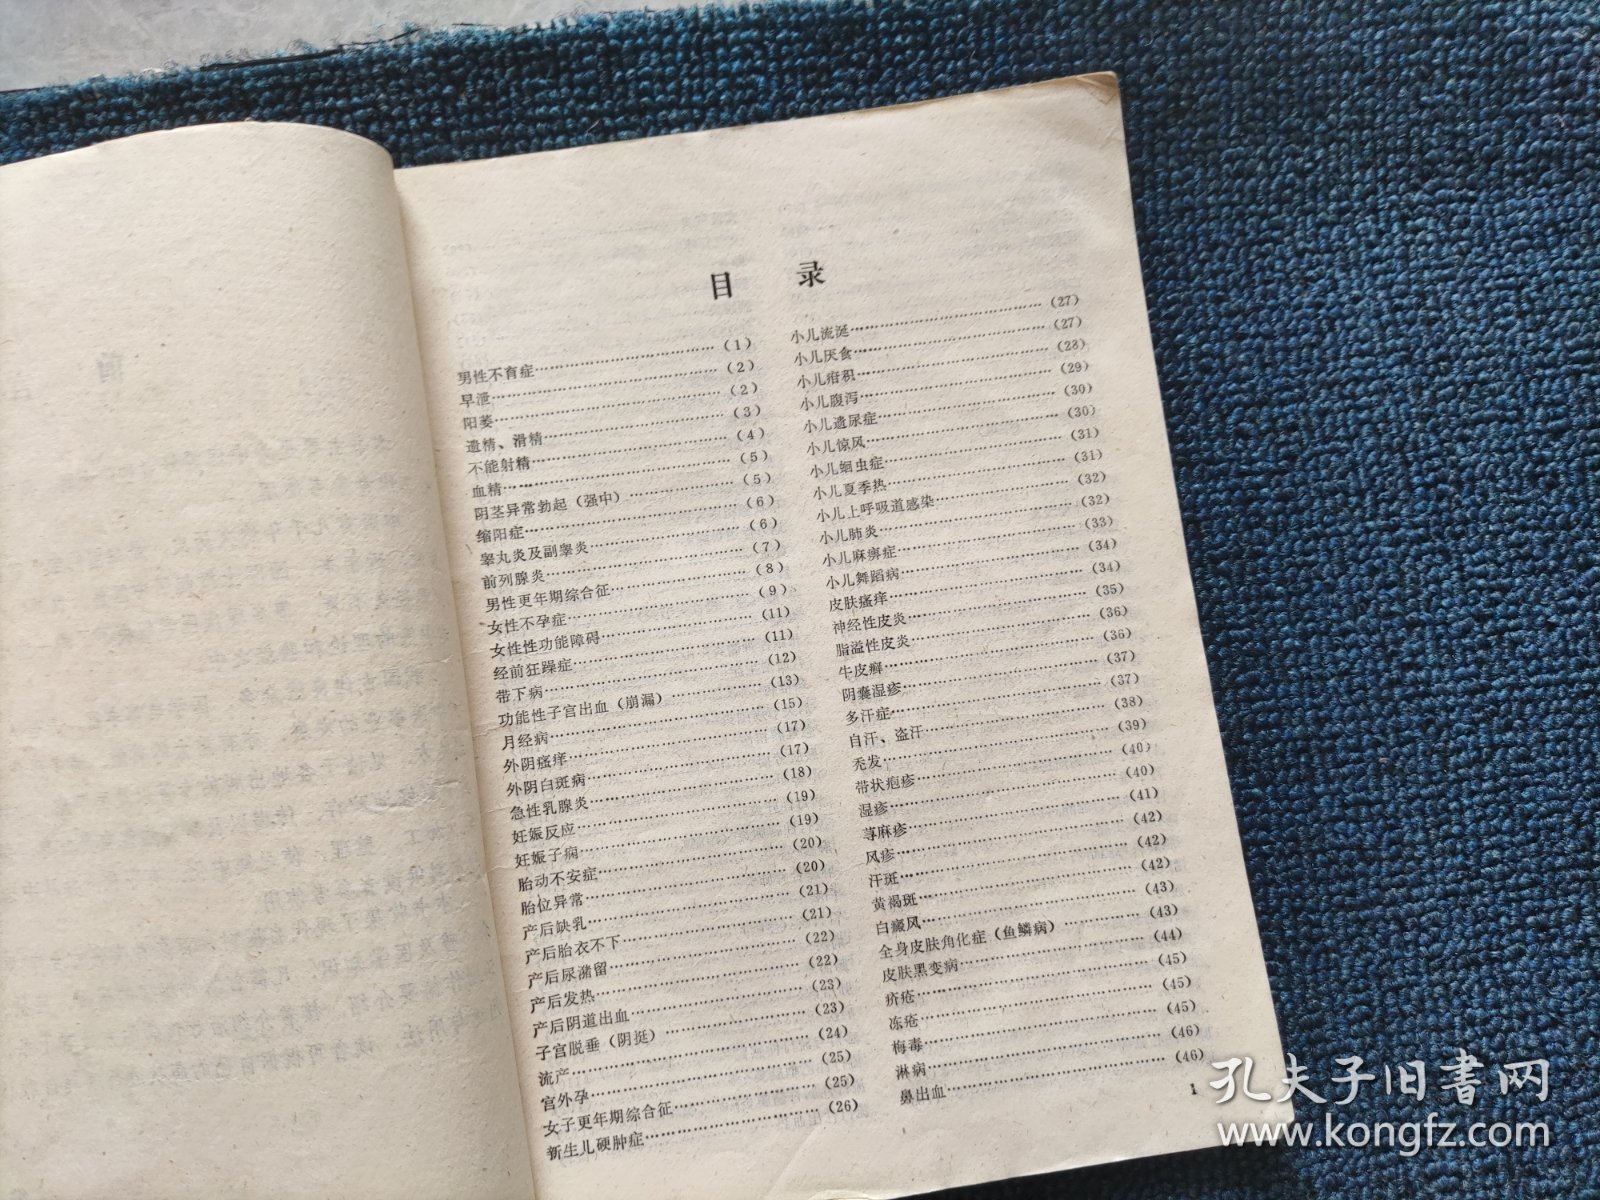 目 录
男性不育症……………………（1）
早泄……………………（2）
阳萎……………………（2）
遗精、滑精……………………（3）
不能射精……………………（4）
血精……………………（5）
阴茎异常勃起（强中）……………（5）
缩阳症……………………（6）
睾丸炎及副睾炎……………………（6）
前列腺炎……………………（7）
男性更年期综合征……………………（8）
女性不孕症……………………（9）
女性性功能障碍……………………（11）
经前狂躁症……………………（11）
带下病……………………（12）
功能性子宫出血（崩漏）……………（13）
月经病……………………（15）
外阴瘙痒……………………（17）
外阴白斑病……………………（17）
急性乳腺炎……………………（18）
妊娠反应……………………（19）
妊娠子痫……………………（19）
胎动不安症……………………（20）
胎位异常……………………（20）
产后缺乳……………………（21）
产后胎衣不下……………………（21）
产后尿潴留……………………（22）
产后发热……………………（22）
产后阴道出血……………………（23）
子宫脱垂（阴挺）……………………（23）
流产……………………（24）
宫外孕……………………（25）
女子更年期综合征……………………（25）
新生儿硬肿症……………………（26）
小儿流涎……………………（27）
小儿厌食……………………（27）
小儿疳积……………………（28）
小儿腹泻……………………（29）
小儿遗尿症……………………（30）
小儿惊风……………………（30）
小儿蛔虫症……………………（31）
小儿夏季热……………………（31）
小儿上呼吸道感染……………………（32）
小儿肺炎……………………（32）
小儿麻痹症……………………（33）
小儿舞蹈病……………………（34）
皮肤瘙痒……………………（34）
神经性皮炎……………………（35）
脂溢性皮炎……………………（36）
牛皮癣……………………（36）
阴囊湿疹……………………（37）
多汗症……………………（37）
自汗、盗汗……………………（38）
秃发……………………（39）
带状疱疹……………………（40）
湿疹……………………（40）
荨麻疹……………………（41）
风疹……………………（42）
汗斑……………………（42）
黄褐斑……………………（42）
白癜风……………………（43）
全身皮肤角化症（鱼鳞病）……………（43）
皮肤黑变病……………………（44）
疥疮……………………（45）
冻疮……………………（45）
梅毒……………………（45）
淋病……………………（46）
鼻出血……………………（46）
1
孔夫子旧书网
www.kongfz.com